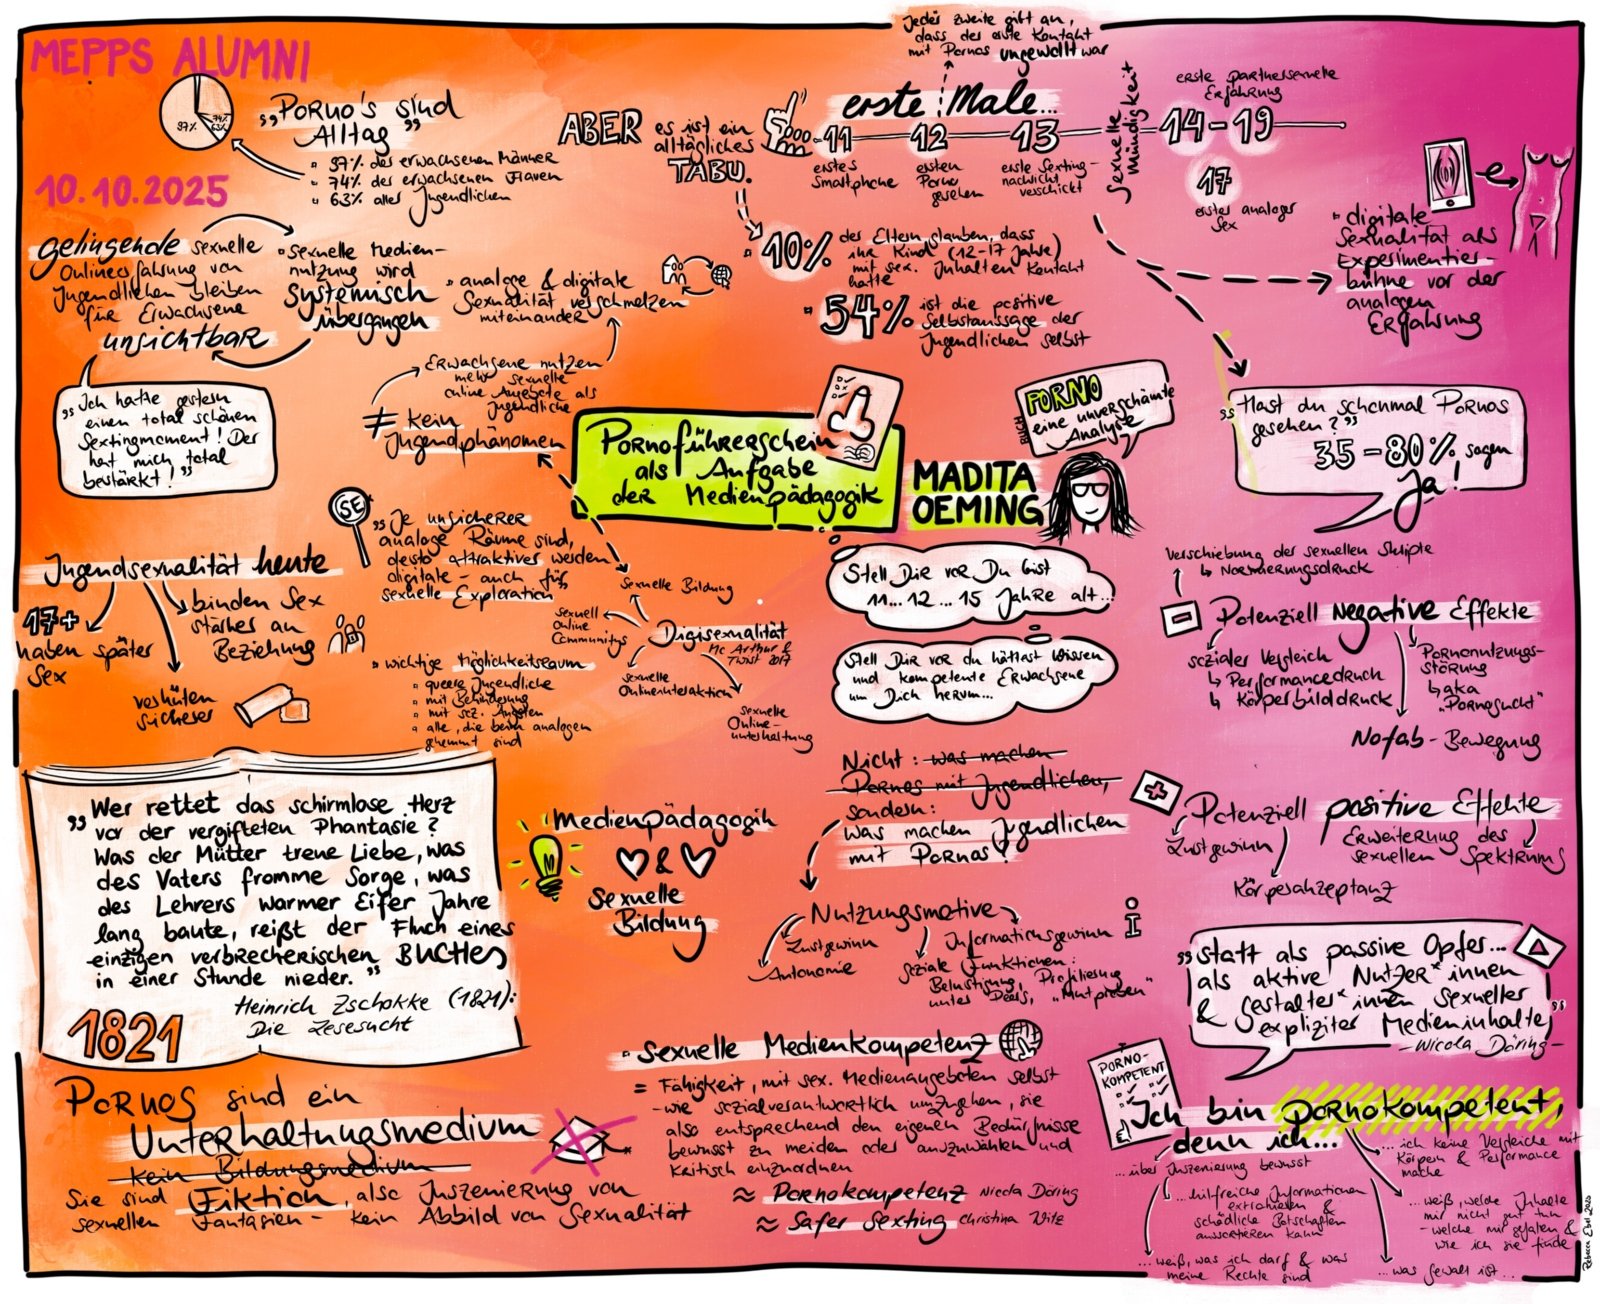 MEPPS ALUMNI
10.10.2025
97%
74%
63%
„Porno's sind
Alltag“
97% der erwachsenen Männer
74% der erwachsenen Frauen
63% aller Jugendlichen
ABER
es ist ein
alltägliches
TABU.
Jeder zweite gibt an,
dass der erste Kontakt
mit Pornos ungewollt war
erste Male...
11
erstes
Smartphone
12
ersten
Porno
gesehen
13
erste Sexting-
nachricht
verschickt
sexuelle
Mündigkeit
erste partnersexuelle
Erfahrung
14-19
17
erster analoger
Sex
digitale
Sexualität als
Experimentier-
bühne vor der
analogen
Erfahrung
gelingende sexuelle
Onlineerfahrung von
Jugendlichen bleiben
für Erwachsene
unsichtbar
sexuelle Medien-
nutzung wird
systemisch
übergangen
analoge & digitale
Sexualität verschmelzen
miteinander
10%
der Eltern glauben, dass
ihr Kind (12-17 Jahre)
mit sex. Inhalten Kontakt
hatte
54%
ist die positive
Selbstaussage der
Jugendlichen selbst
„Ich hatte gestern
einen total schönen
Sextingmoment! Der
hat mich total
bestärkt!“
Erwachsene nutzen
mehr sexuelle
online Angebote als
Jugendliche
≠ kein
Jugendphänomen
Pornoführerschein
als Aufgabe
der Medienpädagogik
MADITA
OEMING
BUCH
PORNO
eine unverschämte
Analyse
„Hast du schonmal Pornos
gesehen?“
35-80% sagen
Ja!
SE
„Je unsicherer
analoge Räume sind,
desto attraktiver werden
digitale - auch für
sexuelle Exploration“
Jugendsexualität heute
17+
haben später
Sex
binden Sex
stärker an
Beziehung
verhüten
sicherer
wichtige Möglichkeitsraum
queere Jugendliche
mit Behinderung
mit soz. Ängsten
alle, die beim analogen
gehemmt sind
Sexuelle Bildung
sexuell
Online
Communitys
Digisexualität
Mc Arthur &
Twist 2017
sexuelle
Onlineinteraktion
sexuelle
Online-
unterhaltung
Stell Dir vor Du bist
11... 12... 15 Jahre alt...
Stell Dir vor du hättest Wissen
und kompetente Erwachsene
um Dich herum...
Verschiebung der sexuellen Skripte
↳ Normierungsdruck
Potenziell negative Effekte
sozialer Vergleich
↳ Performancedruck
↳ Körperbilddruck
Pornonutzungs-
störung
↳ aka
„Pornosucht“
Nofab - Bewegung
Nicht: was machen
Pornos mit Jugendlichen,
sondern:
was machen Jugendlichen
mit Pornos?
Potenziell positive Effekte
Lustgewinn
Erweiterung des
sexuellen Spektrums
Körperakzeptanz
„Wer rettet das schirmlose Herz
vor der vergifteten Phantasie?
Was der Mütter treue Liebe, was
des Vaters fromme Sorge, was
des Lehrers warmer Eifer Jahre
lang baute, reißt der Fluch eines
einzigen verbrecherischen BUCHES
in einer Stunde nieder.“
Heinrich Zschokke (1821):
Die Lesesucht
1821
Medienpädagogik
&
Sexuelle
Bildung
Nutzungsmotive
Lustgewinn
Autonomie
Informationsgewinn
i
soziale Funktionen:
Belustigung, Profilierung
unter Peers, „Mutproben“
„Statt als passive Opfer...
als aktive Nutzer*innen
& Gestalter*innen sexueller
expliziter Medieninhalte“
- Nicola Döring -
Pornos sind ein
Unterhaltungsmedium
kein Bildungsmedium
Sie sind Fiktion, also Inszenierung von
sexuellen Fantasien - kein Abbild von Sexualität
sexuelle Medienkompetenz
= Fähigkeit, mit sex. Medienangeboten selbst
-wie sozialverantwortlich umzugehen, sie
also entsprechend den eigenen Bedürfnisse
bewusst zu meiden oder auszuwählen und
kritisch einzuordnen
≈ Pornokompetenz Nicola Döring
≈ Safer Sexting Christina Witz
PORNO-
KOMPETENT
Ich bin pornokompetent,
denn ich...
...über Inszenierung bewusst
...hilfreiche Informationen
extrahieren &
schädliche Botschaften
aussortieren kann
...weiß, was ich darf & was
meine Rechte sind
...ich keine Vergleiche mit
Körpern & Performance
mache
...weiß, welche Inhalte
mir nicht gut tun
- welche mir gefallen &
wie ich sie finde
...was Gewalt ist...
Rebecca Ebel 2025